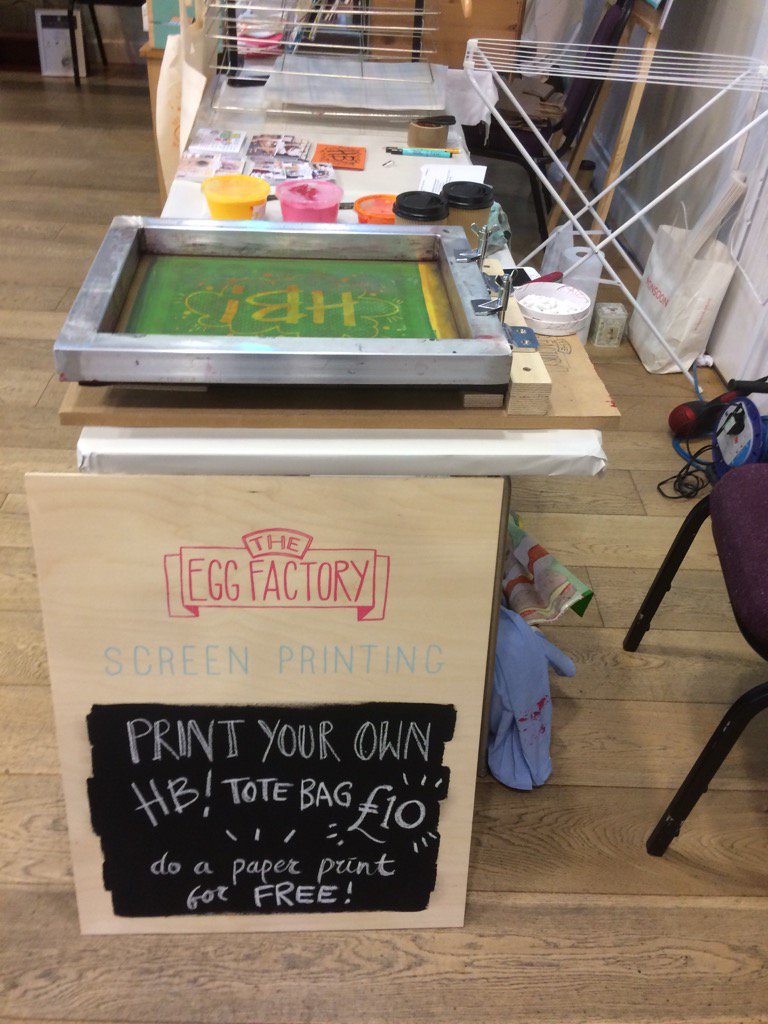 HB!
MONSOON
THE
EGG FACTORY
SCREEN PRINTING
PRINT YOUR OWN
HB! TOTE BAG £10
do a paper print
for FREE!